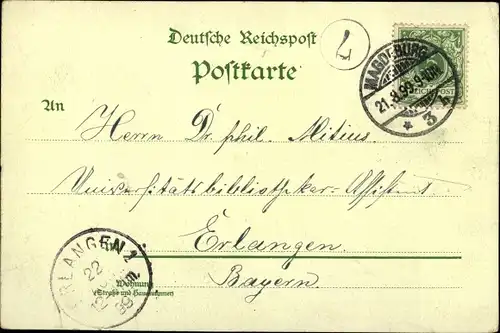 Deutsche Reichspost
Postkarte
7
MAGDEBURG
21.
3
REICHSPOST
An
Herrn Dr. phil. Mitius.
Universitätsbibliotheker-Assistent
Erlangen.
Bayern.
ERLANGEN 1
22
Wohnung
(Straße und Hausnummer)